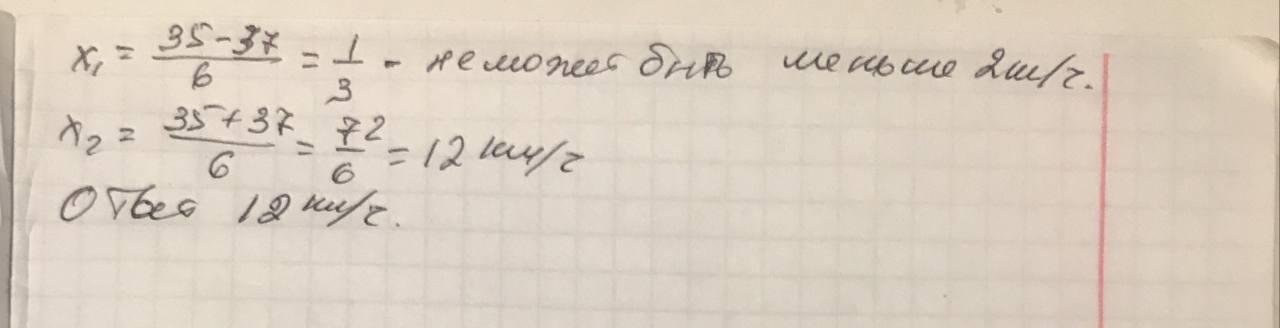 x₁ = (35-37)/6 = 1/3 - не может быть меньше 2км/ч.
x₂ = (35+37)/6 = 72/6 = 12 км/ч
Ответ 12 км/ч.